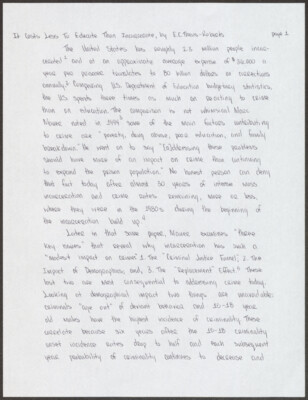 It Costs Less To Educate Than Incarcerate, by E.C. 
page 1
The United States has roughly 2.2 million people incar-
cerated¹ and at an approximate average expense of $36,000 a
year per prisoner translates to 80 billion dollars on corrections
annually.² Comparing U.S. Department of Education budgetary statistics,
the U.S. spends three times as much on reacting to crime
than on education. The comparison is not whimsical. Marc
Mauer noted in 1999³ some of the main factors contributing
to crime are "poverty, drug abuse, poor education, and family
breakdown." He went on to say "[a]ddressing these problems
should have more of an impact on crime than continuing
to expand the prison population." No honest person can deny
that fact today after almost 30 years of intense mass
incarceration and crime rates remaining, more or less,
where they were in the 1980's during the beginning of
the incarceration build up.⁴
Later in that same paper, Mauer mentions "three
key areas" that reveal why incarceration has such a
"modest impact on crime": 1. the "Criminal Justice Funnel", 2. the
Impact of Demographics, and, 3. the "Replacement" Effect.⁵ These
last two are most consequential to addressing crime today.
Looking at demographical impact two things are unavoidable:
criminals "age out" of deviant behavior and 15-18 year
old males have the highest incidence of criminality. These
correlate because six years after the 15-18 criminality
onset incidence rates drop to half and each subsequent
year probability of criminality continues to decrease and